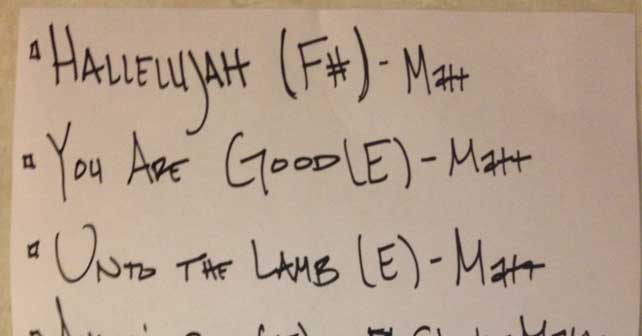 HALLELUJAH (F#) - Matt
YOU ARE GOOD (E) - Matt
UNTO THE LAMB (E) - Matt